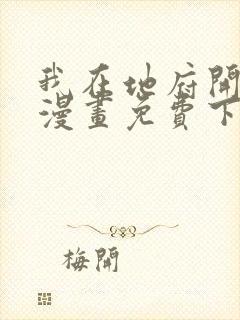 我在地府開
漫畫免費下
梅開